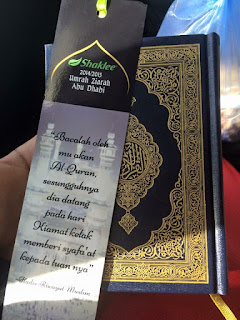 Shaklee
2014/2015
Umrah Ziarah
Abu Dhabi
"Bacalah oleh
mu akan
Al-Quran,
sesungguhnya
dia datang
pada hari
Kiamat kelak
memberi syafa at
kepada tuan nya"
-Hadis Riwayat Muslim